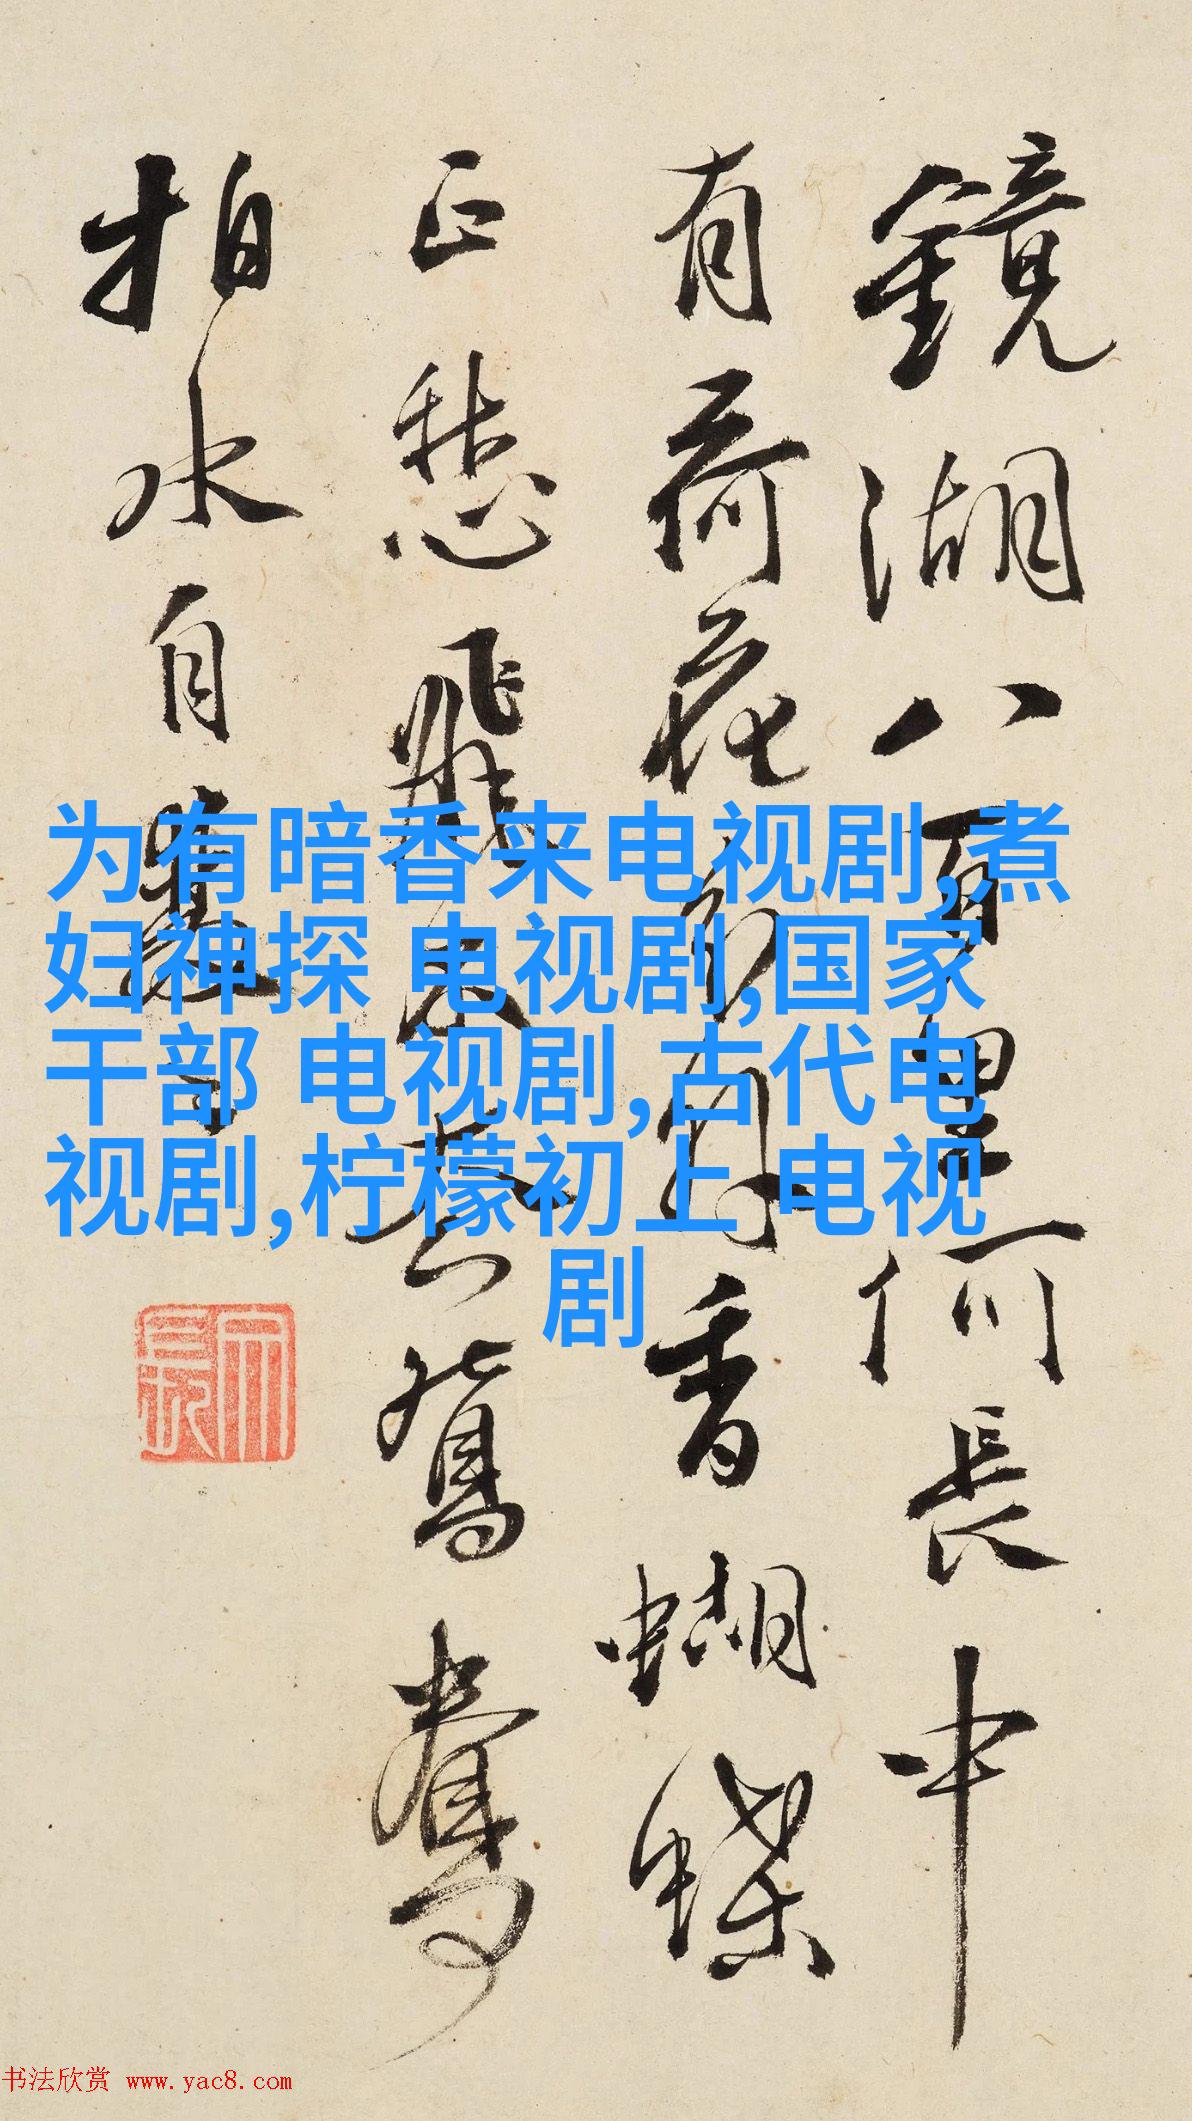 鏡湖八百里何長中
有荷花分外香蝴蝶
正愁飛不去鴛鴦
拍水自雙
为有暗香来电视剧,煮
妇神探 电视剧,国家
干部 电视剧,古代电
视剧,柠檬初上 电视
剧
书法欣赏 www.yac8.com